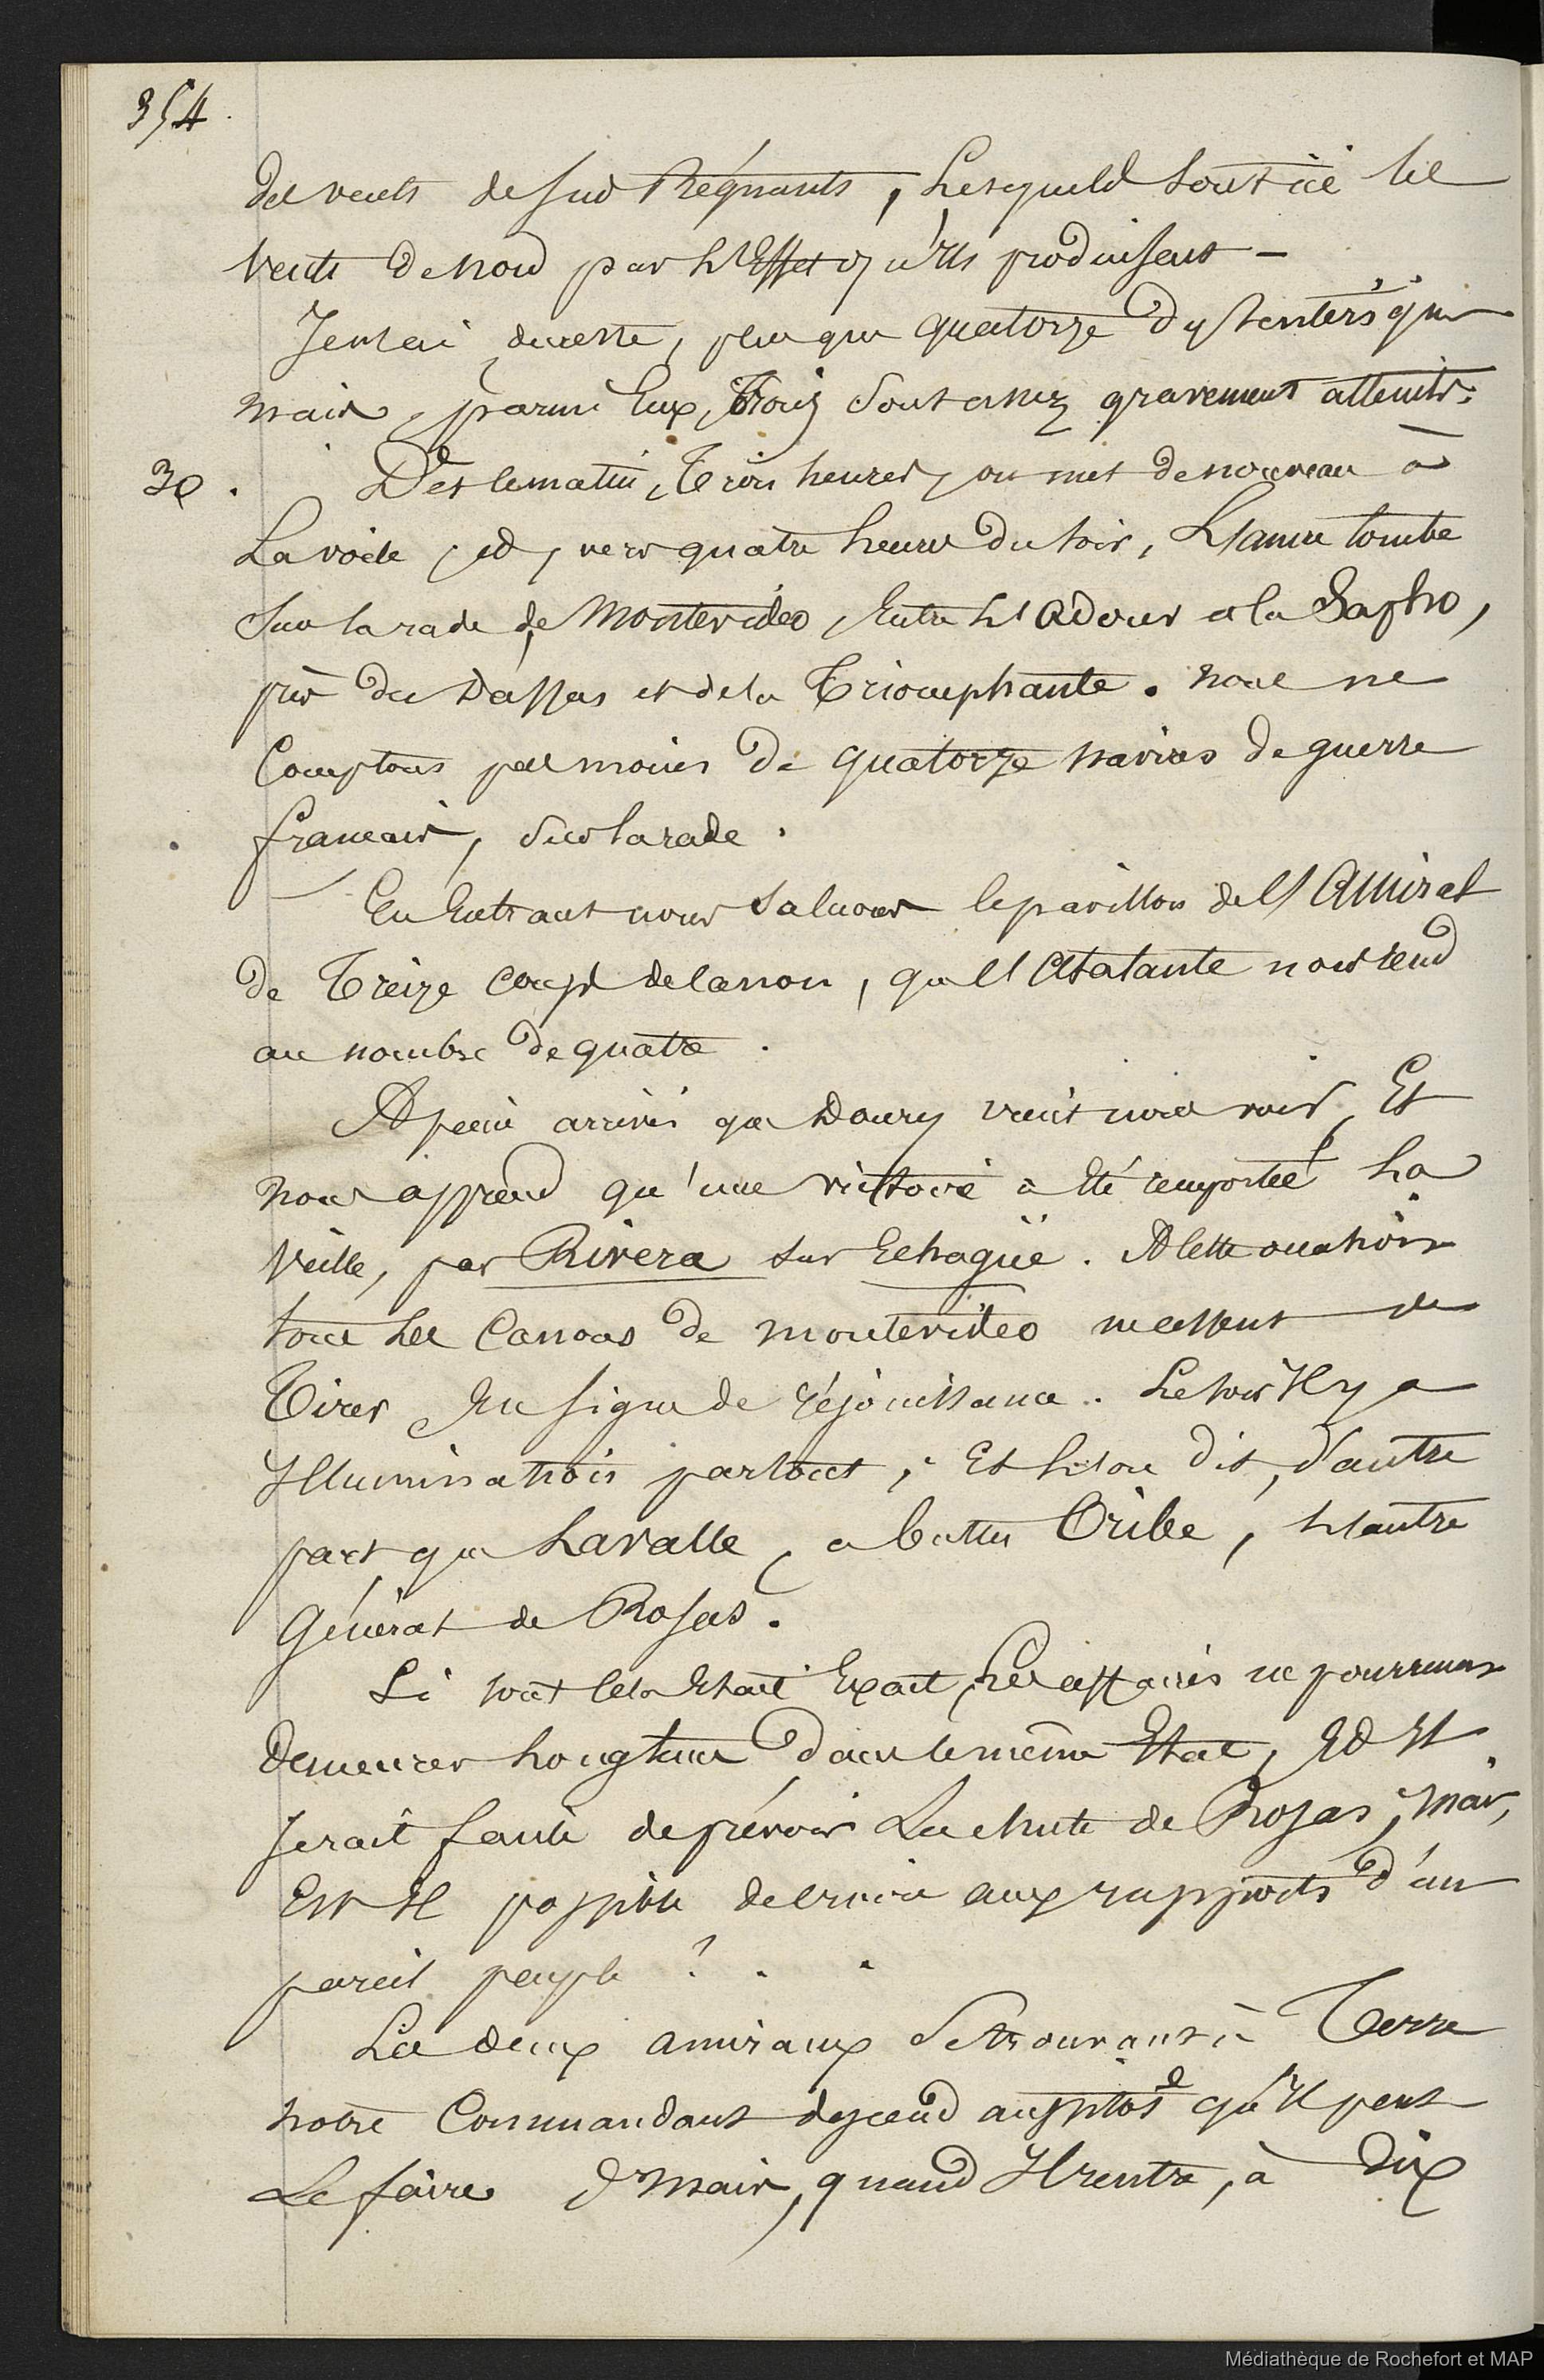 354.
des vents de sud Régnants, Lesquels sont ici les
vents de nord par L'Effet qu'Ils produisent —
Je n'ai, du reste, plus que quatorze dyssentériques
mais, parmi Eux, Trois sont assez gravement atteints.
30. Dès le matin, Trois heures, on met de nouveau à
La voile, et, vers quatre heures du soir, L'ancre tombe
sur la rade de Montevideo, Entre L'Adour et la Sapho,
près du Dassas et de la Triomphante. nous ne
Comptons pas moins de quatorze navires de guerre
français, sur la rade.
En Entrant nous saluons le pavillon de l'Amiral
de Treize coups de canon, que l'Atalante nous rend
au nombre de quatre.
A peine arrivés que Doury vient nous voir, Et
nous apprend qu'une victoire a Eté remportée La
veille, par Rivera sur Echagüe. A cette occasion
tous Les Canons de montevideo ne cessent de
Tirer En signe de réjouissance. Le soir Il y a
Illumination partout; Et L'on dit, d'autre
part que Lavalle, a battu Oribe, L'autre
Général de Rosas.
Si tout cela Etait Exact, Les affaires ne pourraient
demeurer Longtems dans le même Etat, Et Il
serait facile de prévoir La chute de Rosas; mais,
Est Il possible de croire aux rapports d'un
pareil peuple ? . .
Les deux amiraux se trouvant à Terre
notre Commandant descend aussitôt qu'Il peut
Le faire mais, quand Il rentre, à Dix
Médiathèque de Rochefort et MAP